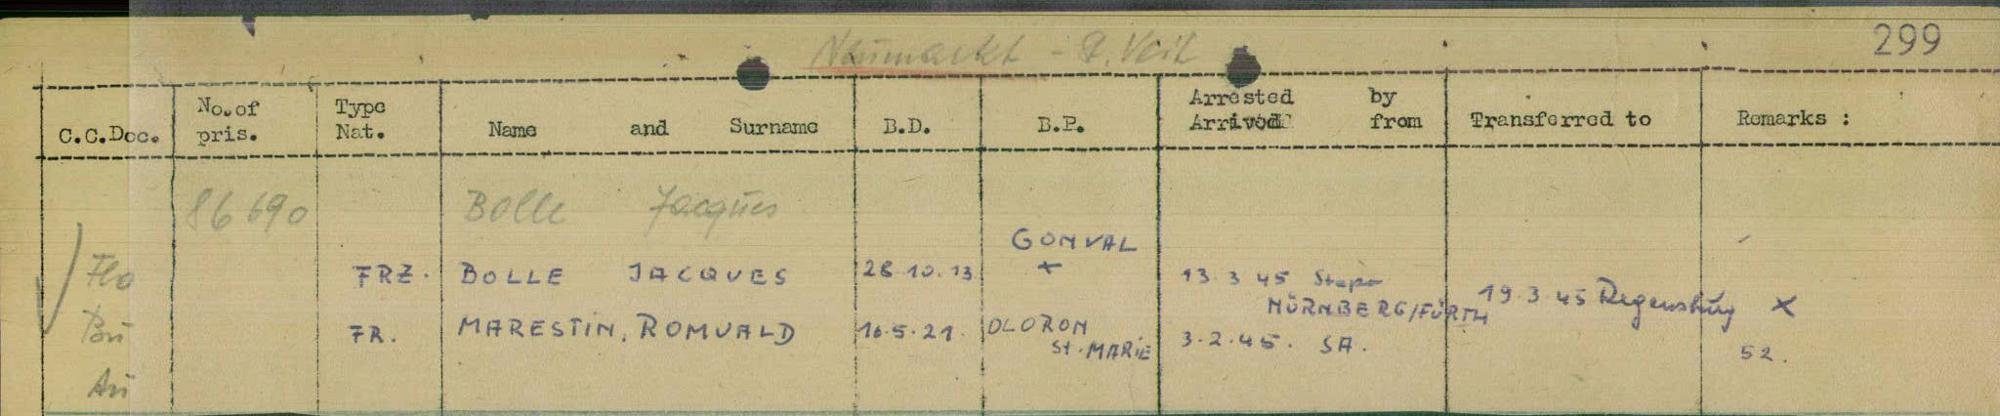 299
Neumarkt - St. Veit
C.C.Doc. No.of pris. Type Nat. Name and Surname B.D. B.P. Arrested by Arrived from Transferred to Remarks :
86690 Bolle Jacques
GONVAL
Flo FRZ. BOLLE JACQUES 28.10.13 + 13.3.45 Stapo
NÜRNBERG/FÜRTH 19.3.45 Regensburg X
FR. MARESTIN, ROMUALD 16.5.21. OLORON
St. MARIE 3.2.45. SA.
52.